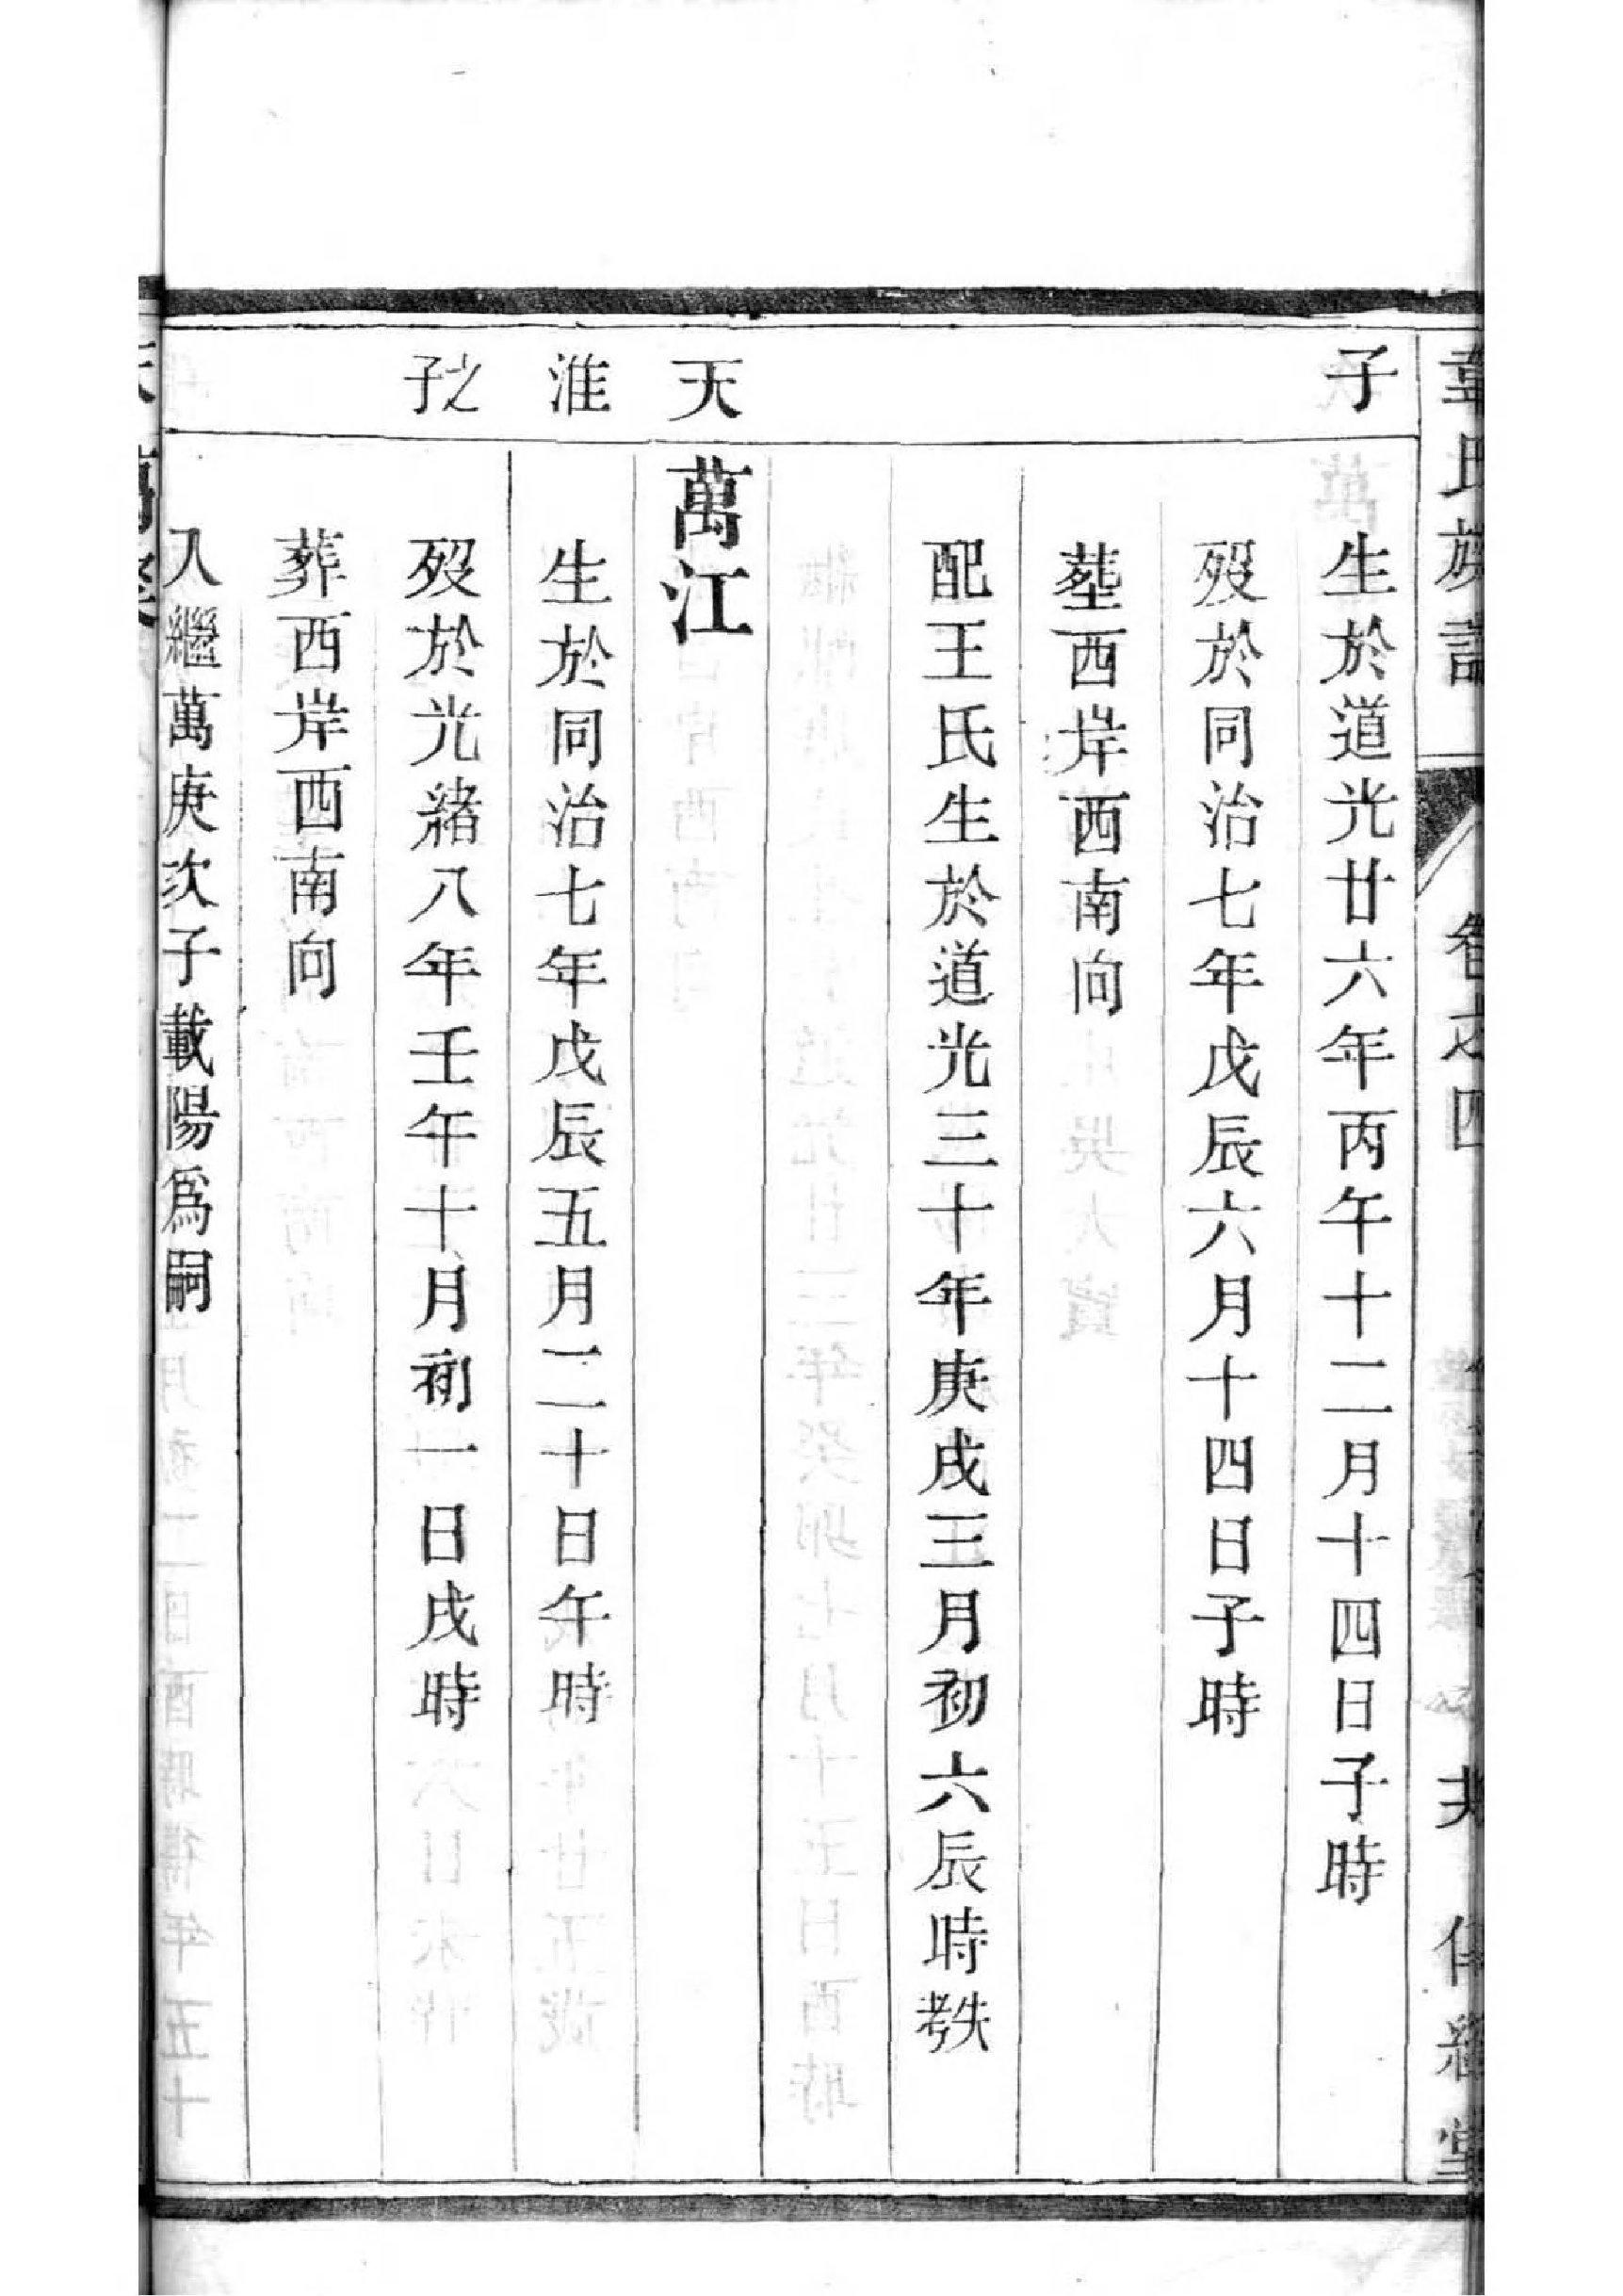 韋氏族譜 卷之四
子
生於道光廿六年丙午十二月十四日子時
歿於同治七年戊辰六月十四日子時
塟西岸西南向
配王氏生於道光三十年庚戌三月初六辰時失考
天淮之子
萬江
生於同治七年戊辰五月二十日午時
歿於光緒八年壬午十月初一日戌時
葬西岸西南向
入繼萬庚次子載陽為嗣